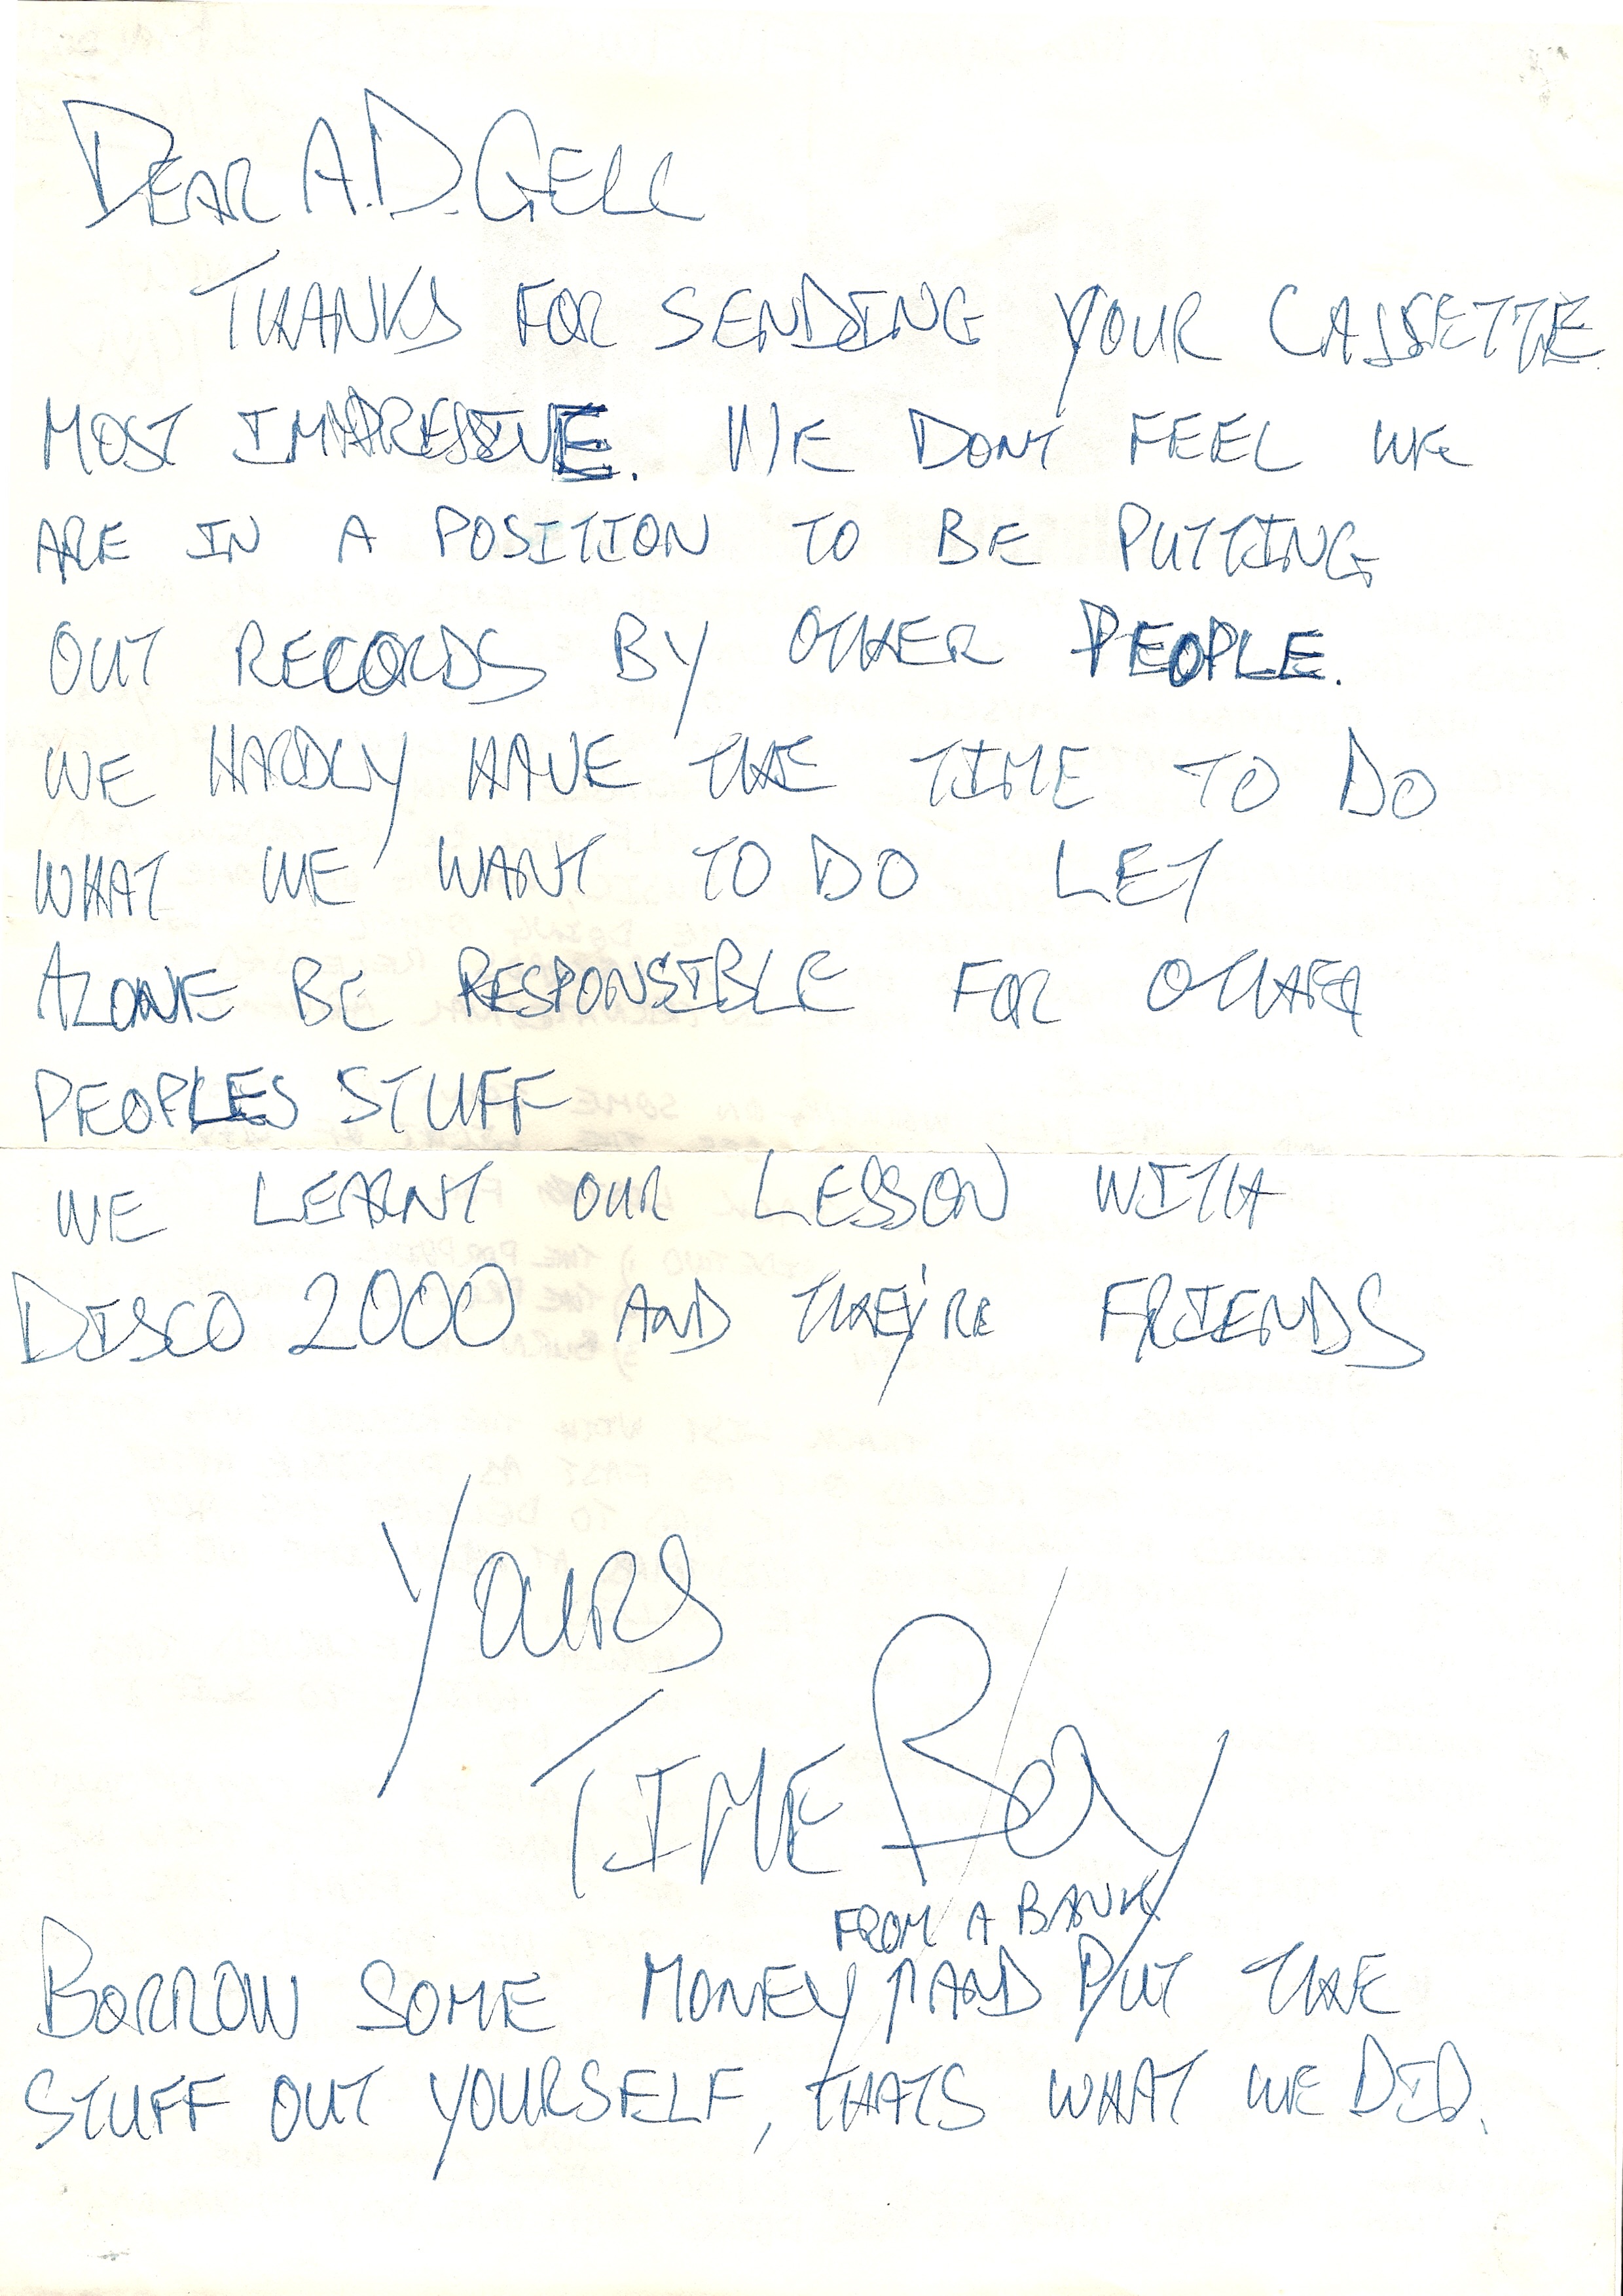 DEAR A.D. GELL
THANKS FOR SENDING YOUR CASSETTE.
MOST IMPRESSIVE. WE DONT FEEL WE
ARE IN A POSITION TO BE PUTTING
OUT RECORDS BY OTHER PEOPLE.
WE HARDLY HAVE THE TIME TO DO
WHAT WE WANT TO DO LET
ALONE BE RESPONSIBLE FOR OTHER
PEOPLES STUFF
WE LEARNT OUR LESSON WITH
DISCO 2000 AND THEY'RE FRIENDS
YOURS
TIME BOY
FROM A BANK
BORROW SOME MONEY AND PUT THE
STUFF OUT YOURSELF, THATS WHAT WE DID.